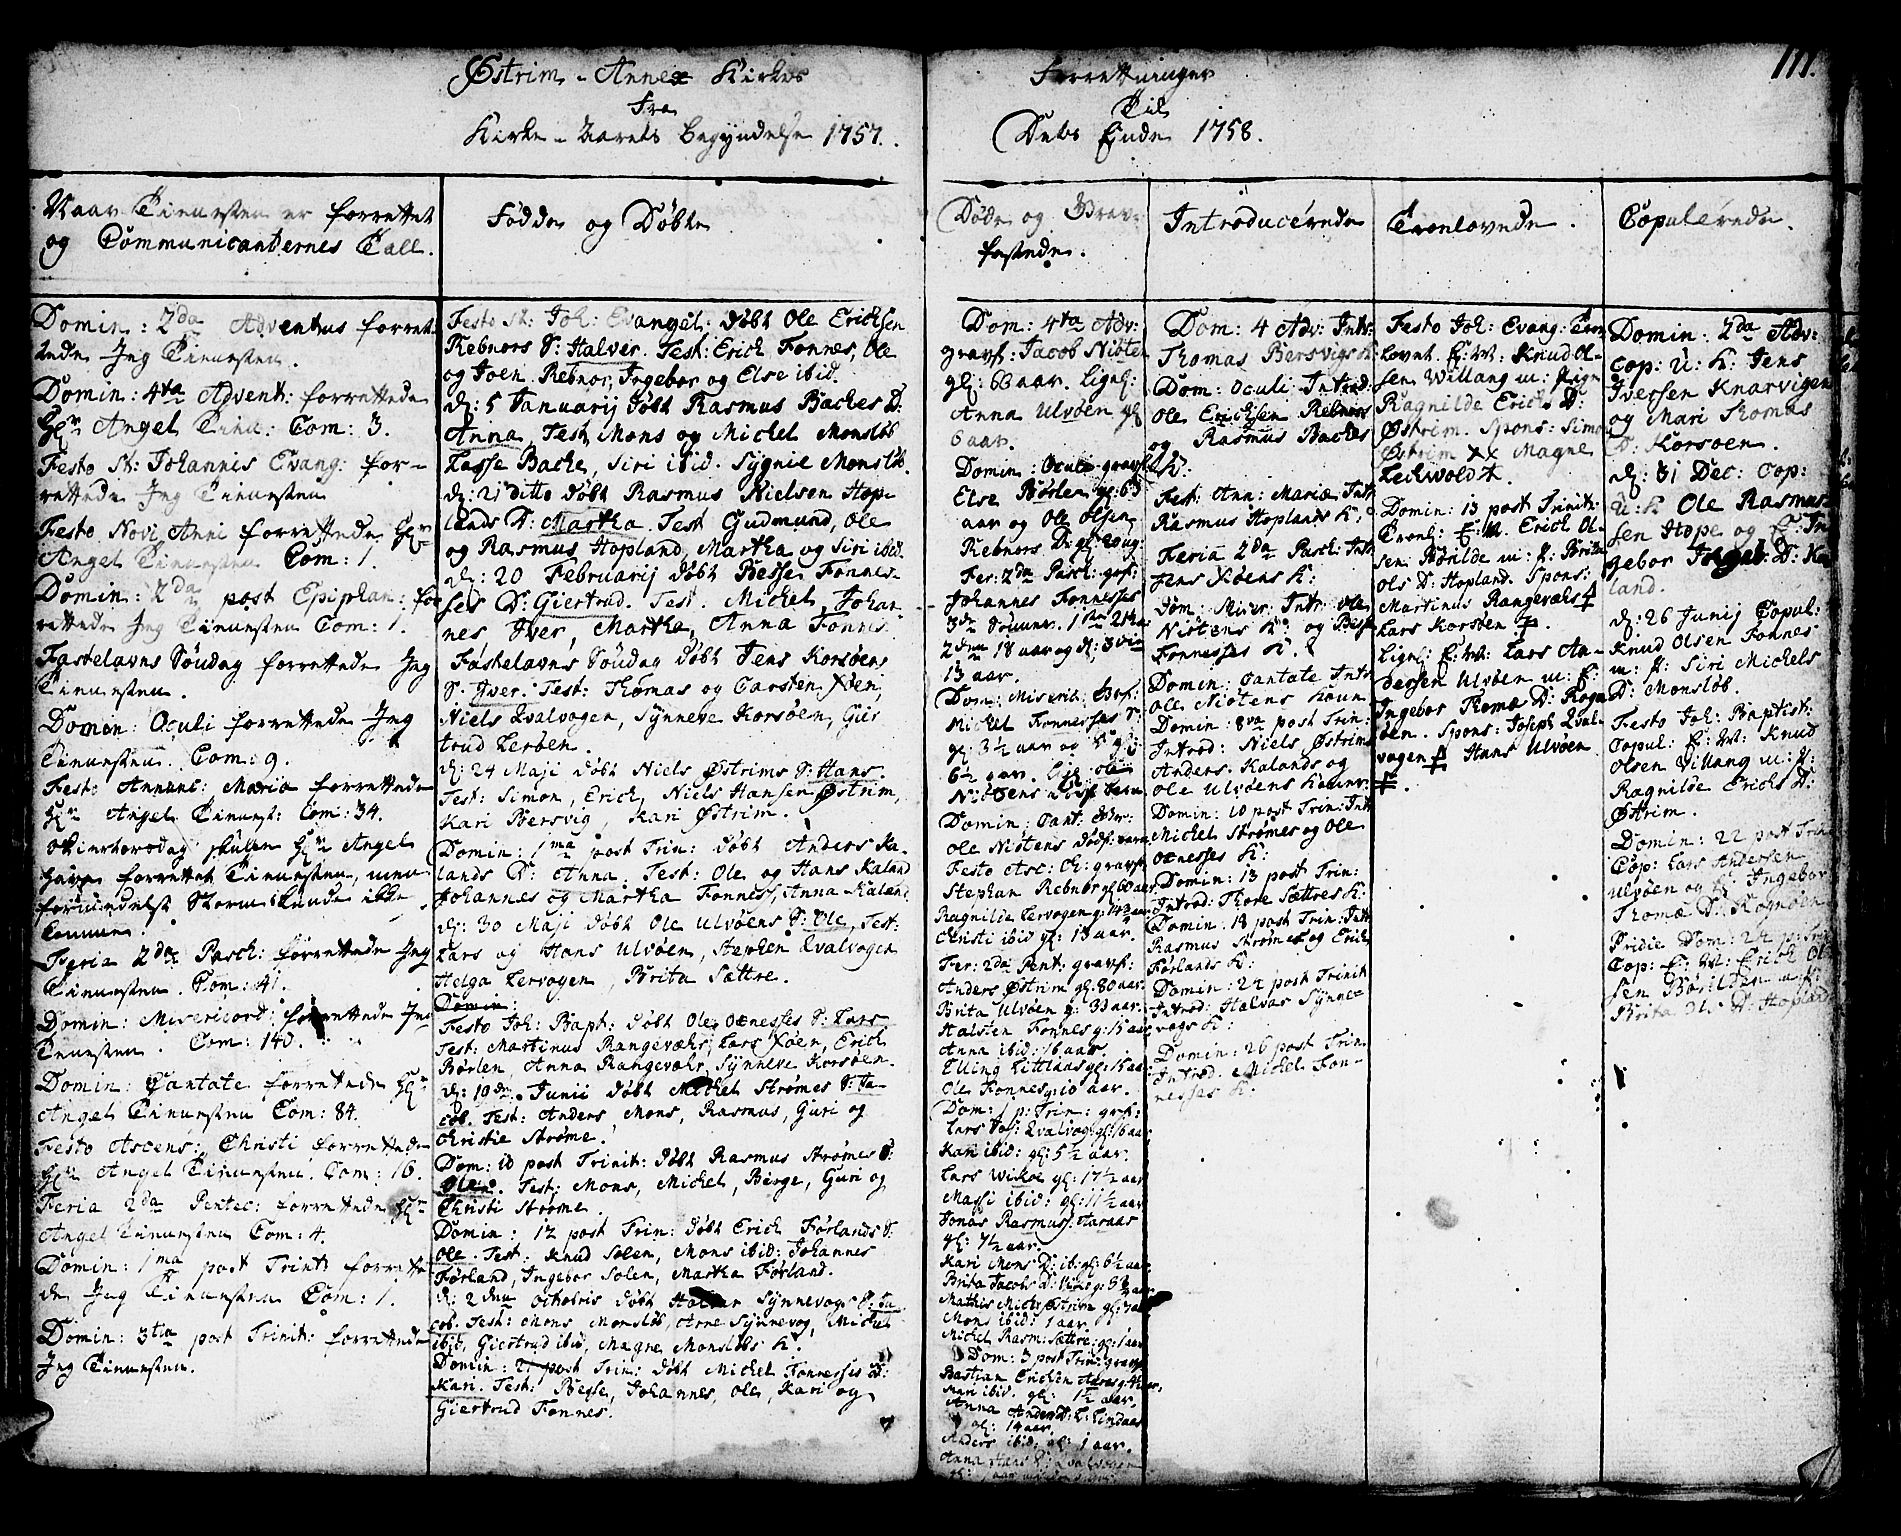 Østrim - Annex Kirkes Forretninger
111.
Fra Til
Kirke - Aarets Begyndelse 1757. Dets Ende 1758.
Naar Tienesten er forrettet
og Communicanternes Tall.
Domin: 2da Adventus forret-
tede Jeg Tienesten.
Domin: 4ta Advent: forrettede
Hr Angel Tien: Com: 3.
Festo St: Johannis Evang: for-
rettede Jeg Tienesten
Festo Novi Anni forrettede Hr
Angel Tienesten Com: 1.
Domin: 2da post Epiphan: for
rettede Jeg Tienesten Com: 1.
Fastelavns Søndag forrettede Jeg
Tienesten.
Domin: Oculi forrettede Jeg
Tienesten. Com: 9.
Festo Annunc: Mariæ forrettede
Hr Angel Tienest: Com: 34.
Skiertorsdag skulde Hr Angel
have forrettet Tienesten, men
formedelst Storm kunde ikke
komme.
Feria 2da Pasch: forrettede Jeg
Tienesten. Com: 41.
Domin: Misericord: forrettede Jeg
Tienesten. Com: 140.
Domin: Cantate forrettede Hr
Angel Tienesten Com: 84.
Festo Ascens: Christi forrettede
Hr Angel Tienesten. Com: 16.
Feria 2da Pentec: forrettede Hr
Angel Tienesten Com: 4.
Domin: 1ma post Trinit: forrette
de Jeg Tienesten Com: 1.
Domin: 3tia post Trinit: forrettede
Jeg Tienesten.
Fødde og Døbte
Festo St: Joh: Evangel: døbt Ole Erichsen
Rebnors S: Halver. Test: Erich Fonnes, Ole
og Joen Rebnor, Ingebor og Else ibid.
d: 5 Januarij døbt Rasmus Baches D:
Anna, Test Mons og Michel Monsløb
Lasse Bache, Siri ibid. Sygnie Monsløb.
d: 21 ditto døbt Rasmus Nielsen Hop-
lands D: Martha. Test Gudmund, Ole
og Rasmus Hopland, Martha og Siri ibid.
d: 20 Februarij døbt Besse Fonnes-
ses D: Giertrud. Test. Michel, Johan
nes Iver, Martha, Anna Fonnes.
Fastelavns Søndag døbt Jens Korsøens
S: Iver. Test: Thomas og Carsten Xøen,
Niels Qvalvogen, Synneve Korsøen, Gier
trud Lerøen.
d: 24 Maji døbt Niels Østrims S: Hans.
Test: Simon, Erich, Niels Hansen Østrim,
Kari Bersvig, Kari Østrim.
Domin: 1ma post Trin: døbt Anders Ka-
lands D: Anna. Test: Ole og Hans Kaland
Johannes og Martha Fonness, Anna Kaland
d: 30 Maji døbt Ole Ulvøens S: Ole, Test:
Lars og Hans Ulvøen, Stephen Qvalvogen
Helga Lervogen, Brita Sættre.
Domin:
Festo Joh: Bapt: døbt Ole Otnesses S: Lars
Test: Martinus Rangevæhr, Lars Xøen, Erich
Børlen, Anna Rangevæhr, Synneve Korsøen.
d: 19de Junii døbt Michel Strømes S: Ja
cob. Test: Anders, Mons, Rasmus, Guri og
Christie Strøme.
Dom: 10 post Trinit: døbt Rasmus Strømes S:
Ole. Test: Mons, Michel, Børge, Guri og
Christi Strøme.
Domin: 12 post Trin: døbt Erich Førlands S:
Ole. Test: Knud Solen, Mons ibid: Johannes
Førland, Ingebor Solen, Martha Førland.
d: 2den Octobris døbt Halvar Synnevogs S: Ja
cob. Test: Mons Monsløb, Arne Synnevog, Michel
ibid, Giertrud ibid, Magne Monsløbs K:
Domin: 21 post Trin: døbt Michel Fonnesses D:
Kari. Test: Besse, Johannes, Ole, Kari og
Giertrud Fonnes.
Døde og Grav-
festede.
Dom: 4ta Adv:
gravf: Jacob Niøten
gl: 66 aar. Ligel:
Anna Ulvøen gl
6 aar.
Domin: Oculi gravf:
Else Børlen gl: 63
aar og Ole Olsen
Rebnors D: gl: 20 ug:
Fer: 2da Pasch: grf:
Johannes Fonnesses
3de Sønner. 1ste 21 aar
2den 18 aar og d: 3die
13 aar.
Dom: Miserich: Grf:
Michel Fonnesses S:
gl: 3½ aar og
6½ aar. Ligel: Ole
Niøtens barn
Domin: Cant: Grv:
Ole Niøtens Dødf: barn
Festo Asc: Ch: gravf:
Stephan Rebnor gl 60 aar
Ragnilde Lervogen g: 14¾ aar
Christi ibid gl: 13 aar.
Fer: 2da Pent: gravf:
Anders Østrim gl: 80 aar.
Brita Ulvøen g: 33 aar.
Halsten Fonnes g:
Anna ibid: 16 aar.
Elling Littlaas gl:
Ole Fonnes g: 10 aar.
Dom: 1 p: Trin: grf:
Lars Qvalvog gl: 16 aar
Kari ibid: gl: 5½ aar.
Lars Wikøe gl: 17½ aar
Massi ibid: gl: 11½ aar
Jonas Rasmus: Aaraas
gl: 7½ aar.
Kari Mons D: ib: gl: 6½ aar
Brita Jacobs D:
Mathis Østrim gl: 3 aar
Mons ibid: 1 aar.
Michel Rasm: Sættre: gl: 1 aar
Dom: 3 post Trin: gravf
Bastian Erichsen Aaraas g:
Mari ibid. gl: 1½ aar.
Anna Anders D: L: Lindaas
gl: 14 aar.
Anders ibid, gl: 1 aar.
Anna Qvalvogen
Introducerede
Dom: 4 Adv: Intr:
Thomas Bersvigs K:
Dom: Oculi Introd:
Ole Erichsen Rebnors
og Rasmus Baches
K:
Fest: Ann: Mariæ Intr
Rasmus Hoplands K:
Feria 2da Pasch: Intr
Jens Xøens K:
Dom: Miser: Intr: Ole
Niøtens K: og Besse
Fonnesses K:
Domin: Cantate Intr
Ole Niøtens Kone
Domin: 8va post Trin:
Introd: Niels Østrims
Anders Kalands og
Ole Ulvøens Koner.
Domin: 10 post Trin: Intr
Michel Strømes og Ole
Otnesses K:
Domin: 13 post Trin:
Introd: Thore Sættres K:
Domin: 18 post Trin: Intr
Rasmus Strømes og Erich
Førlands K:
Domin: 22 post Trinit
Introd: Halvas Synne-
vogs K:
Domin: 26 post Trin
Introd. Michel Fon-
nesses K:
Troelovede.
Festo Joh: Evang: Troe
lovet. E: K: Knud Ol-
sen Willang m: Pign
Ragnilde Erichs D:
Østrim. Spons: Simon
Østrim XX Magne
Leckvold
Domin: 13 post Trinit:
Troel: E: K. Erich Ol-
sen Børilde m: P: Brita
Ols D: Hopland. Spons:
Martinus Rangevæhr
Lars Korsøen
Ligel: E: K: Lars An-
dersen Ulvøen m: P:
Ingebor Thomæ D: Rogn
øen. Spons: Joseph Qval-
vogen Hans Ulvøen
Copulerede.
Domin: 2da Adv:
Cop: U: K: Jens
Iversen Knarvigen
og Mari Thomas
D: Korsøen.
d: 31 Dec: Cop:
U: K Ole Rasmus-
sen Hope og P: In
gebor D: Ka
land.
d: 26 Junij Copul:
Knud Olsen Fonnes
m: P: Siri Michels
D: Monsløb.
Festo Joh: Baptist:
Copul: E: K: Knud
Olsen Villang m: P:
Ragnilde Erichs D:
Østrim.
Domin: 22 post Trin
Cop: Lars Andersen
Ulvøen og P: Ingebor
Thomæ D: Rognøen
Pridie Dom: 24 p: Trin
Cop: E: K: Erich Ol
sen Børilden m: P:
Brita Ols D: Hopland